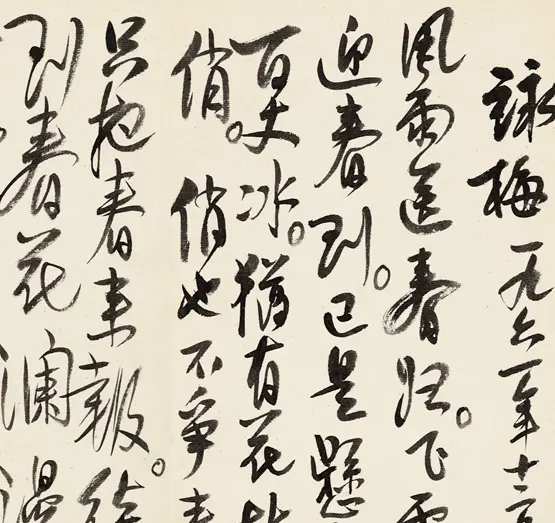 詠梅一九六一年十二
風雨送春歸。飞
迎春到。已是懸
百丈冰。猶有花
俏。俏也不爭春
只把春来報。待
到春花瀾漫